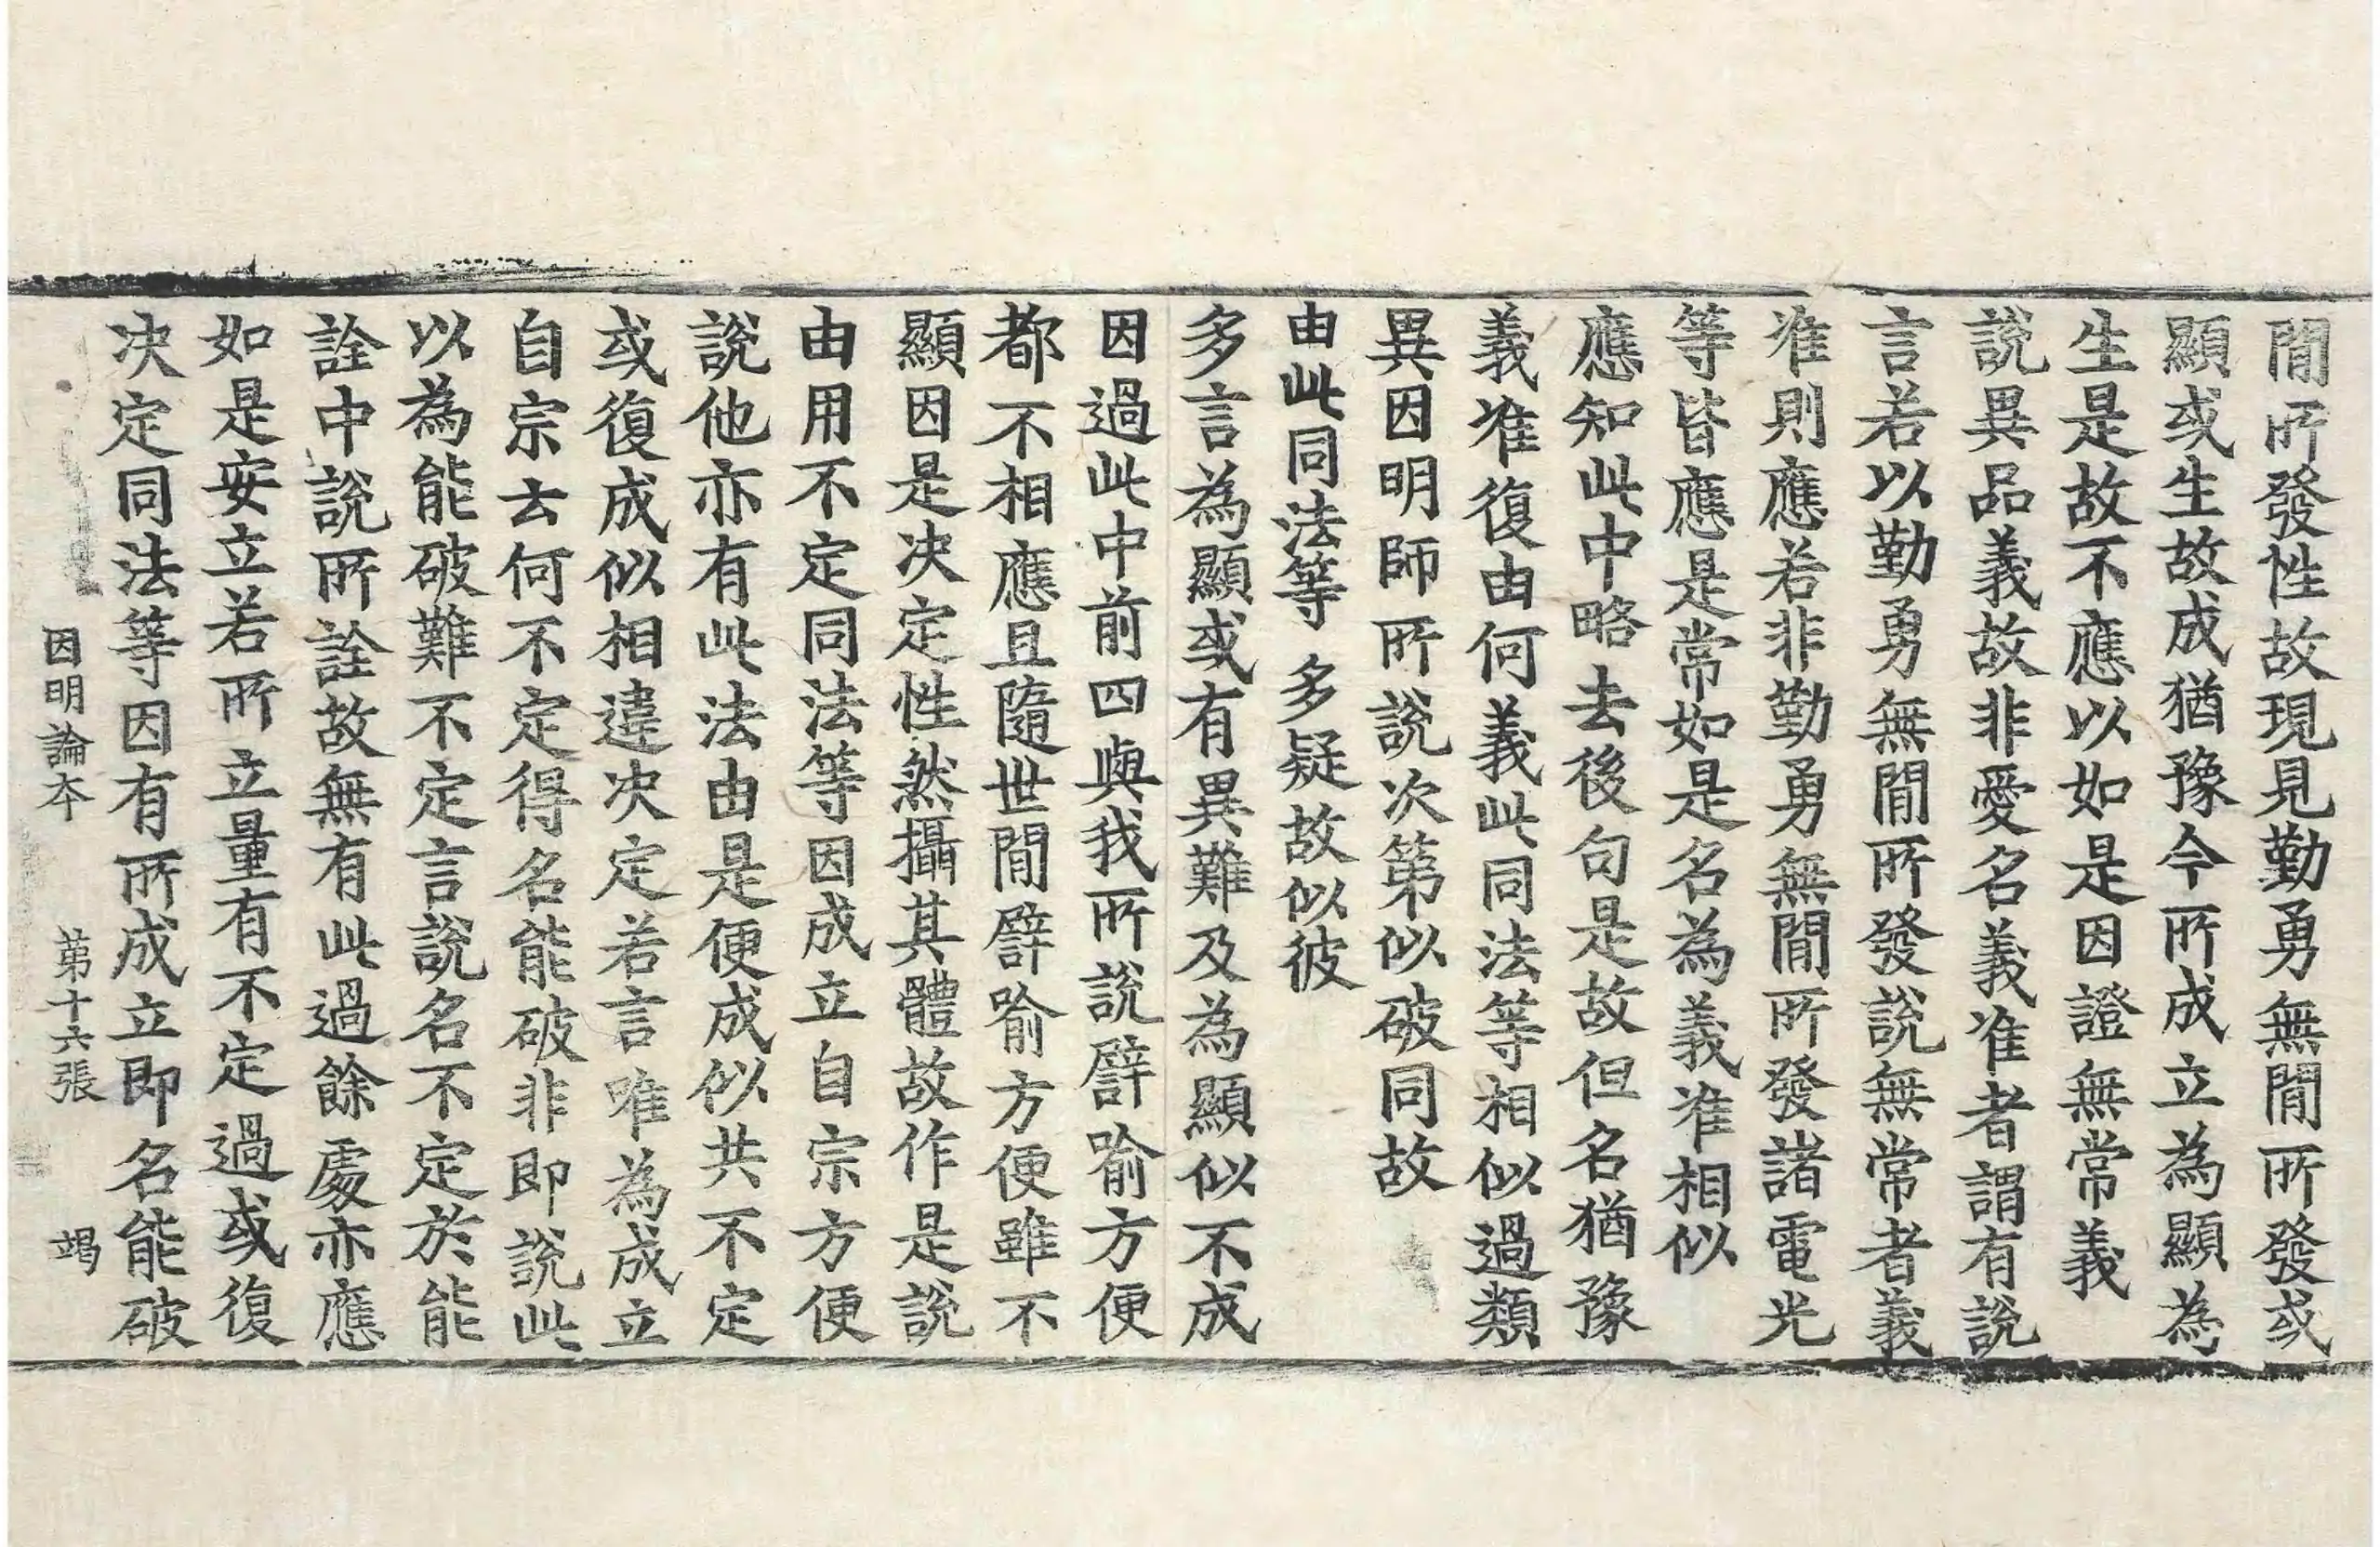 閒所發性故現見勤勇無閒所發或
顯或生故成猶豫今所成立為顯為
生是故不應以如是因證無常義
說異品義故非愛名義准者謂有說
言若以勤勇無閒所發說無常者義
准則應若非勤勇無閒所發諸電光
等皆應是常如是名為義准相似
應知此中略去後句是故但名猶豫
義准復由何義此同法等相似過類
異因明師所說次第似破同故
由此同法等　多疑故似彼
多言為顯或有異難及為顯似不成
因過此中前四與我所說譬喻方便
都不相應且隨世閒譬喻方便雖不
顯因是决定性然攝其體故作是說
由用不定同法等因成立自宗方便
說他亦有此法由是便成似共不定
或復成似相違决定若言唯為成立
自宗云何不定得名能破非即說此
以為能破難不定言說名不定於能
詮中說所詮故無有此過餘處亦應
如是安立若所立量有不定過或復
决定同法等因有所成立即名能破
因明論本　第十六張　竭